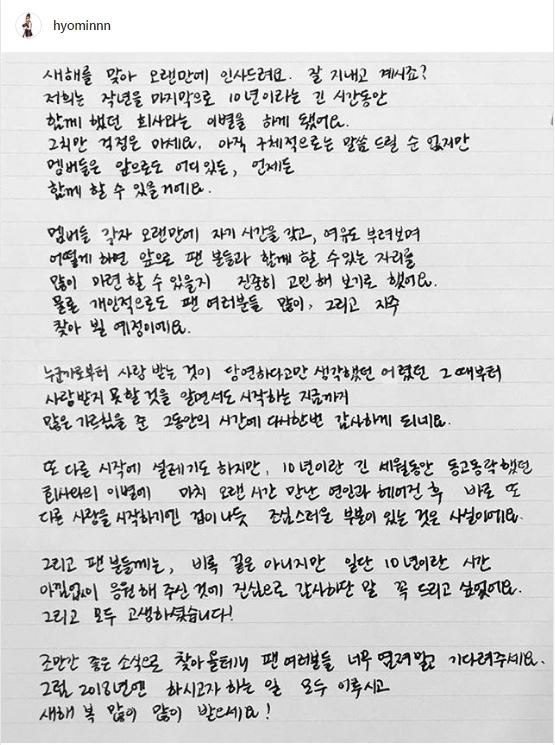 hyominnn
새해를 맞아 오랜만에 인사드려요. 잘 지내고 계시죠?
저희는 작년을 마지막으로 10년이라는 긴 시간동안
함께 했던 회사와는 이별을 하게 됐어요.
그치만 걱정은 마세요. 아직 구체적으로는 말씀 드릴 순 없지만
멤버들은 앞으로도 어디있든, 언제든
함께 할 수 있을거에요.
멤버들 각자 오랜만에 자기 시간을 갖고, 여유도 부려보며
어떻게 하면 앞으로 팬 분들과 함께 할 수있는 자리를
많이 마련 할 수 있을지 진중히 고민 해 보기로 했어요.
물론 개인적으로도 팬 여러분들 많이, 그리고 자주
찾아 뵐 예정이에요.
누군가로부터 사랑 받는 것이 당연하다고만 생각했던 어렸던 그때부터
사랑받지 못할 것을 알면서도 시작하는 지금까지
많은 가르침을 준 그동안의 시간에 다시한번 감사하게 되네요.
또 다를 시작에 설레기도 하지만, 10년이란 긴 세월동안 동고동락 했던
회사와의 이별에 마치 오랜 시간 만난 연인과 헤어진 후 바로 또
다른 사랑을 시작하기엔 겁이 나듯 조심스러운 부분이 있는 것은 사실이에요.
그리고 팬 분들께는, 비록 끝은 아니지만 일단 10년이란 시간
아낌없이 응원해 주신 것에 진심으로 감사하단 말 꼭 드리고 싶었어요.
그리고 모두 고생하셨습니다!
조만간 좋은 소식으로 찾아올테니 팬 여러분들 너무 염려말고 기다려주세요.
그럼 2018년엔 하시고자 하는 일 모두 이루시고
새해 복 많이 많이 받으세요!